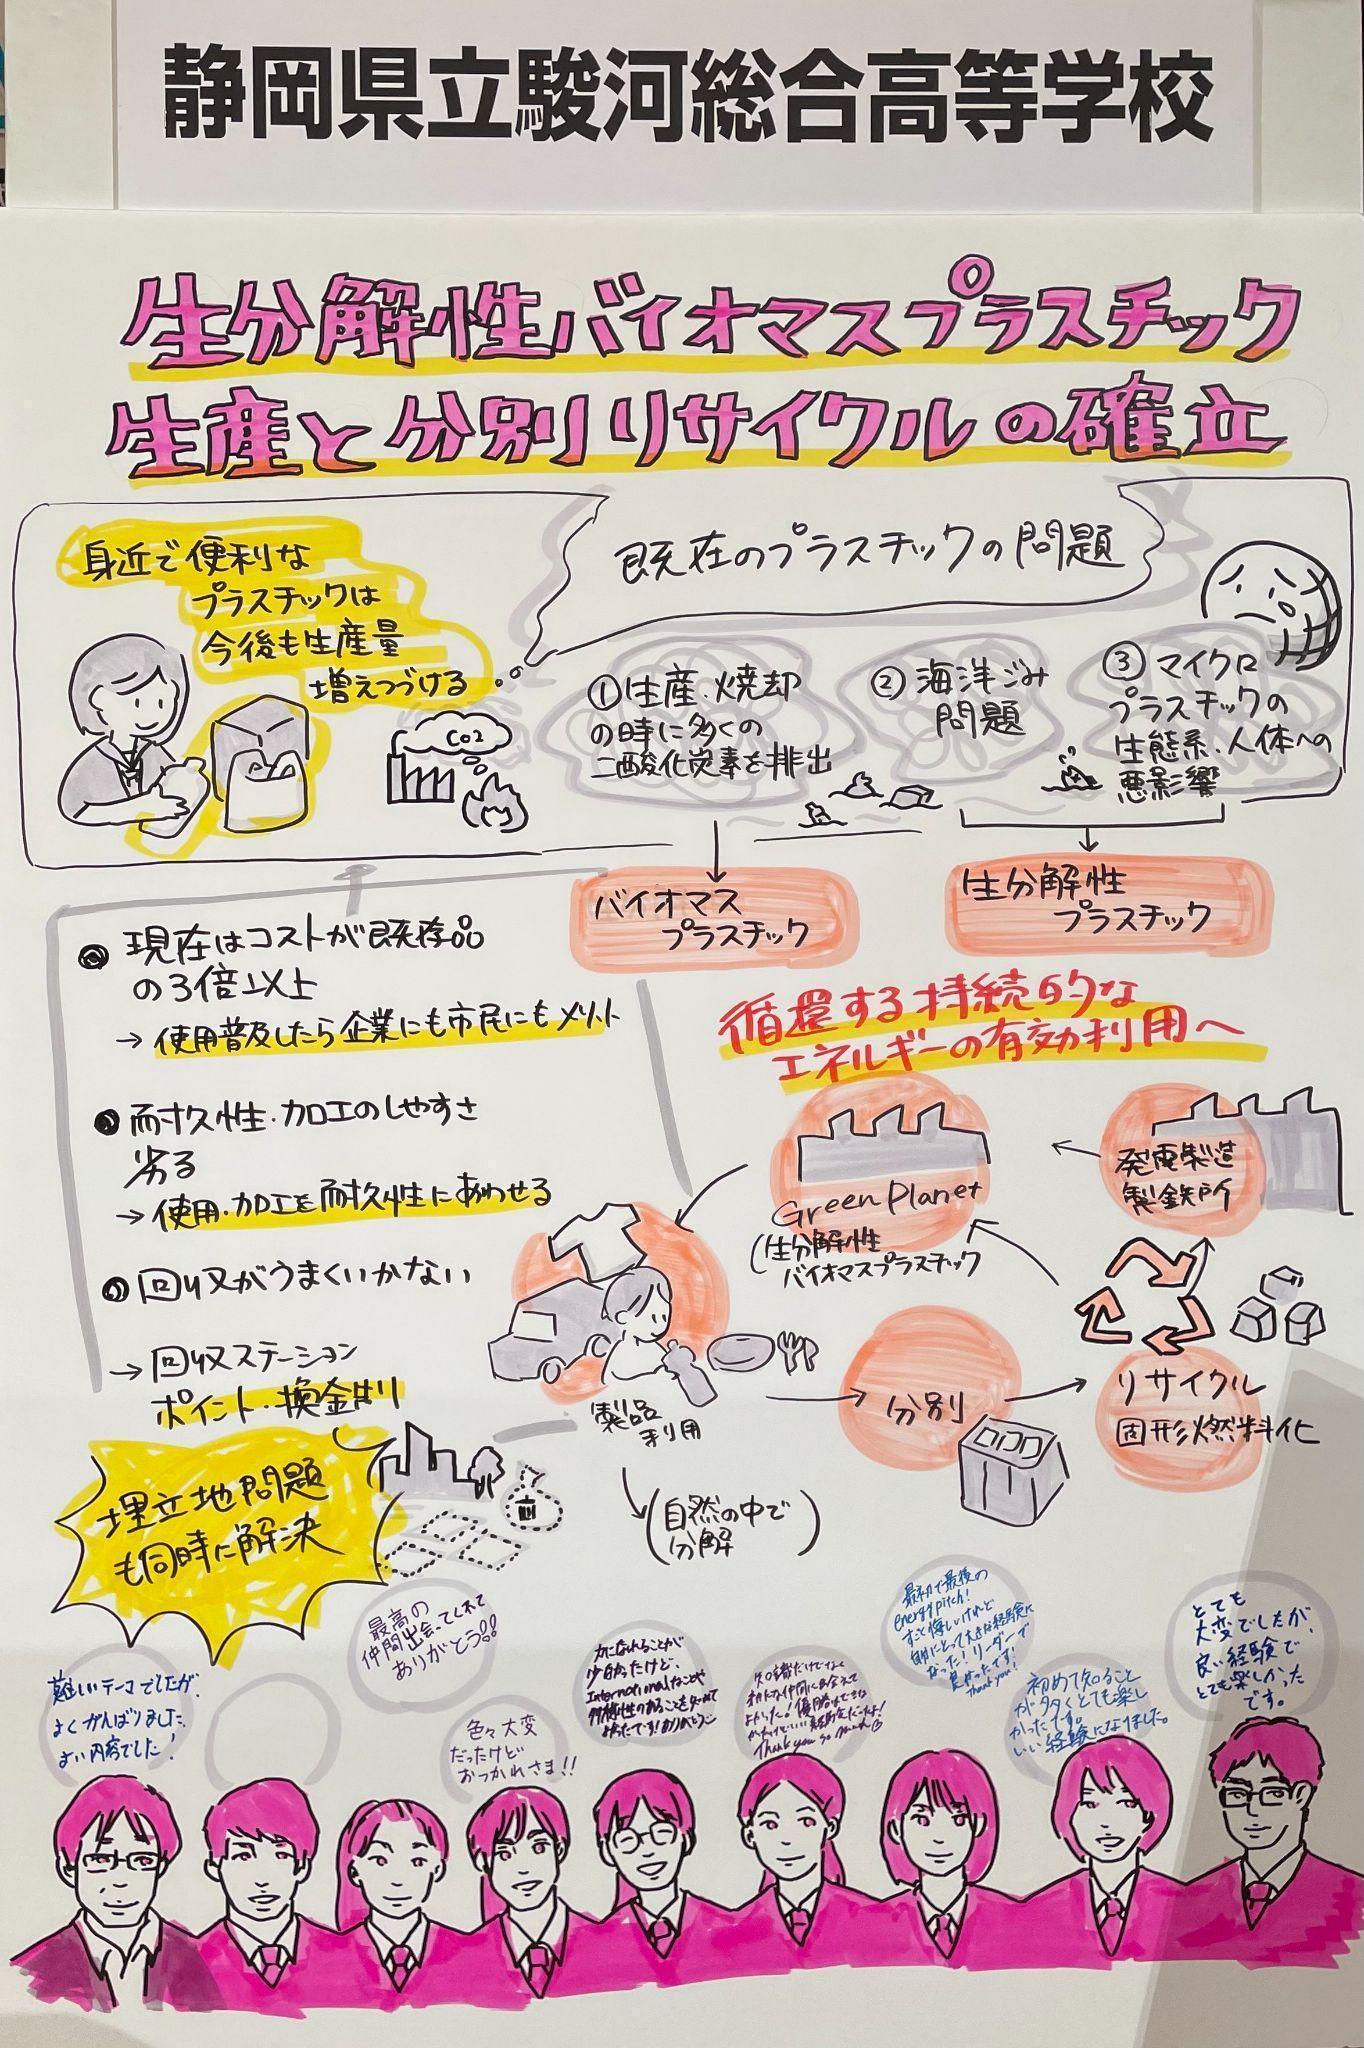 静岡県立駿河総合高等学校
生分解性バイオマスプラスチック
生産と分別リサイクルの確立
身近で便利な
プラスチックは
今後も生産量
増えつづける
既存のプラスチックの問題
CO2
①生産・焼却
の時に多くの
二酸化炭素を排出
②海洋ごみ
問題
③マイクロ
プラスチックの
生態系・人体への
悪影響
バイオマス
プラスチック
生分解性
プラスチック
●現在はコストが既存品
の3倍以上
→使用普及したら企業にも市民にもメリット
●耐久性・加工のしやすさ
劣る
→使用・加工を耐久性にあわせる
●回収がうまくいかない
→回収ステーション
ポイント・換金制
埋立地問題
も同時に解決
循環する持続的な
エネルギーの有効利用へ
Green Planet
(生分解性
バイオマスプラスチック
発電製造
製鉄所
製品
利用
分別
リサイクル
固形燃料化
(自然の中で
分解)
難しいテーマでしたが、
よくがんばりました。
よい内容でした!
最高の
仲間出会ってくれて
ありがとう!!
色々大変
だったけど
おつかれさま!!
力になれることが
少なかったけど、
Internationalなことや
最初で最後の
energy pitch!
すごく悔しいけれど
自分にとって大きな経験に
なった!リーダーで
良かったです!
Thank you!
Thank you so much
初めて知ること
が多くとても楽し
かったです。
いい経験になりました。
とても
大変でしたが、
良い経験で
とても楽しかった
です。